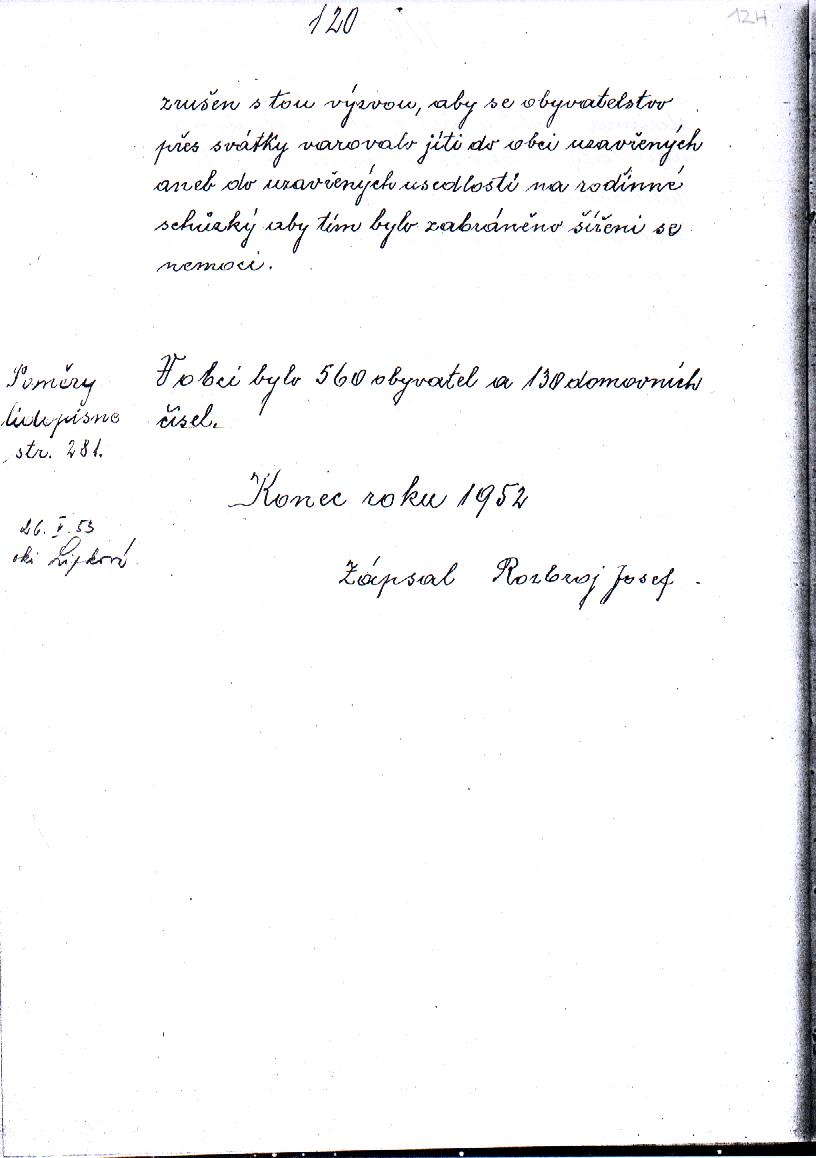 120
124
zrušen s tou výzvou, aby se obyvatelstvo
přes svátky varovalo jíti do obcí uzavřených
aneb do uzavřených usedlostí na rodinné
schůzky aby tím bylo zabráněno šíření se
nemoci.
Poměry
lidopisné
str. 281.
V obci bylo 560 obyvatel a 138 domovních
čísel.
Konec roku 1952
26. V. 53
Zápsal Rozbroj Josef.